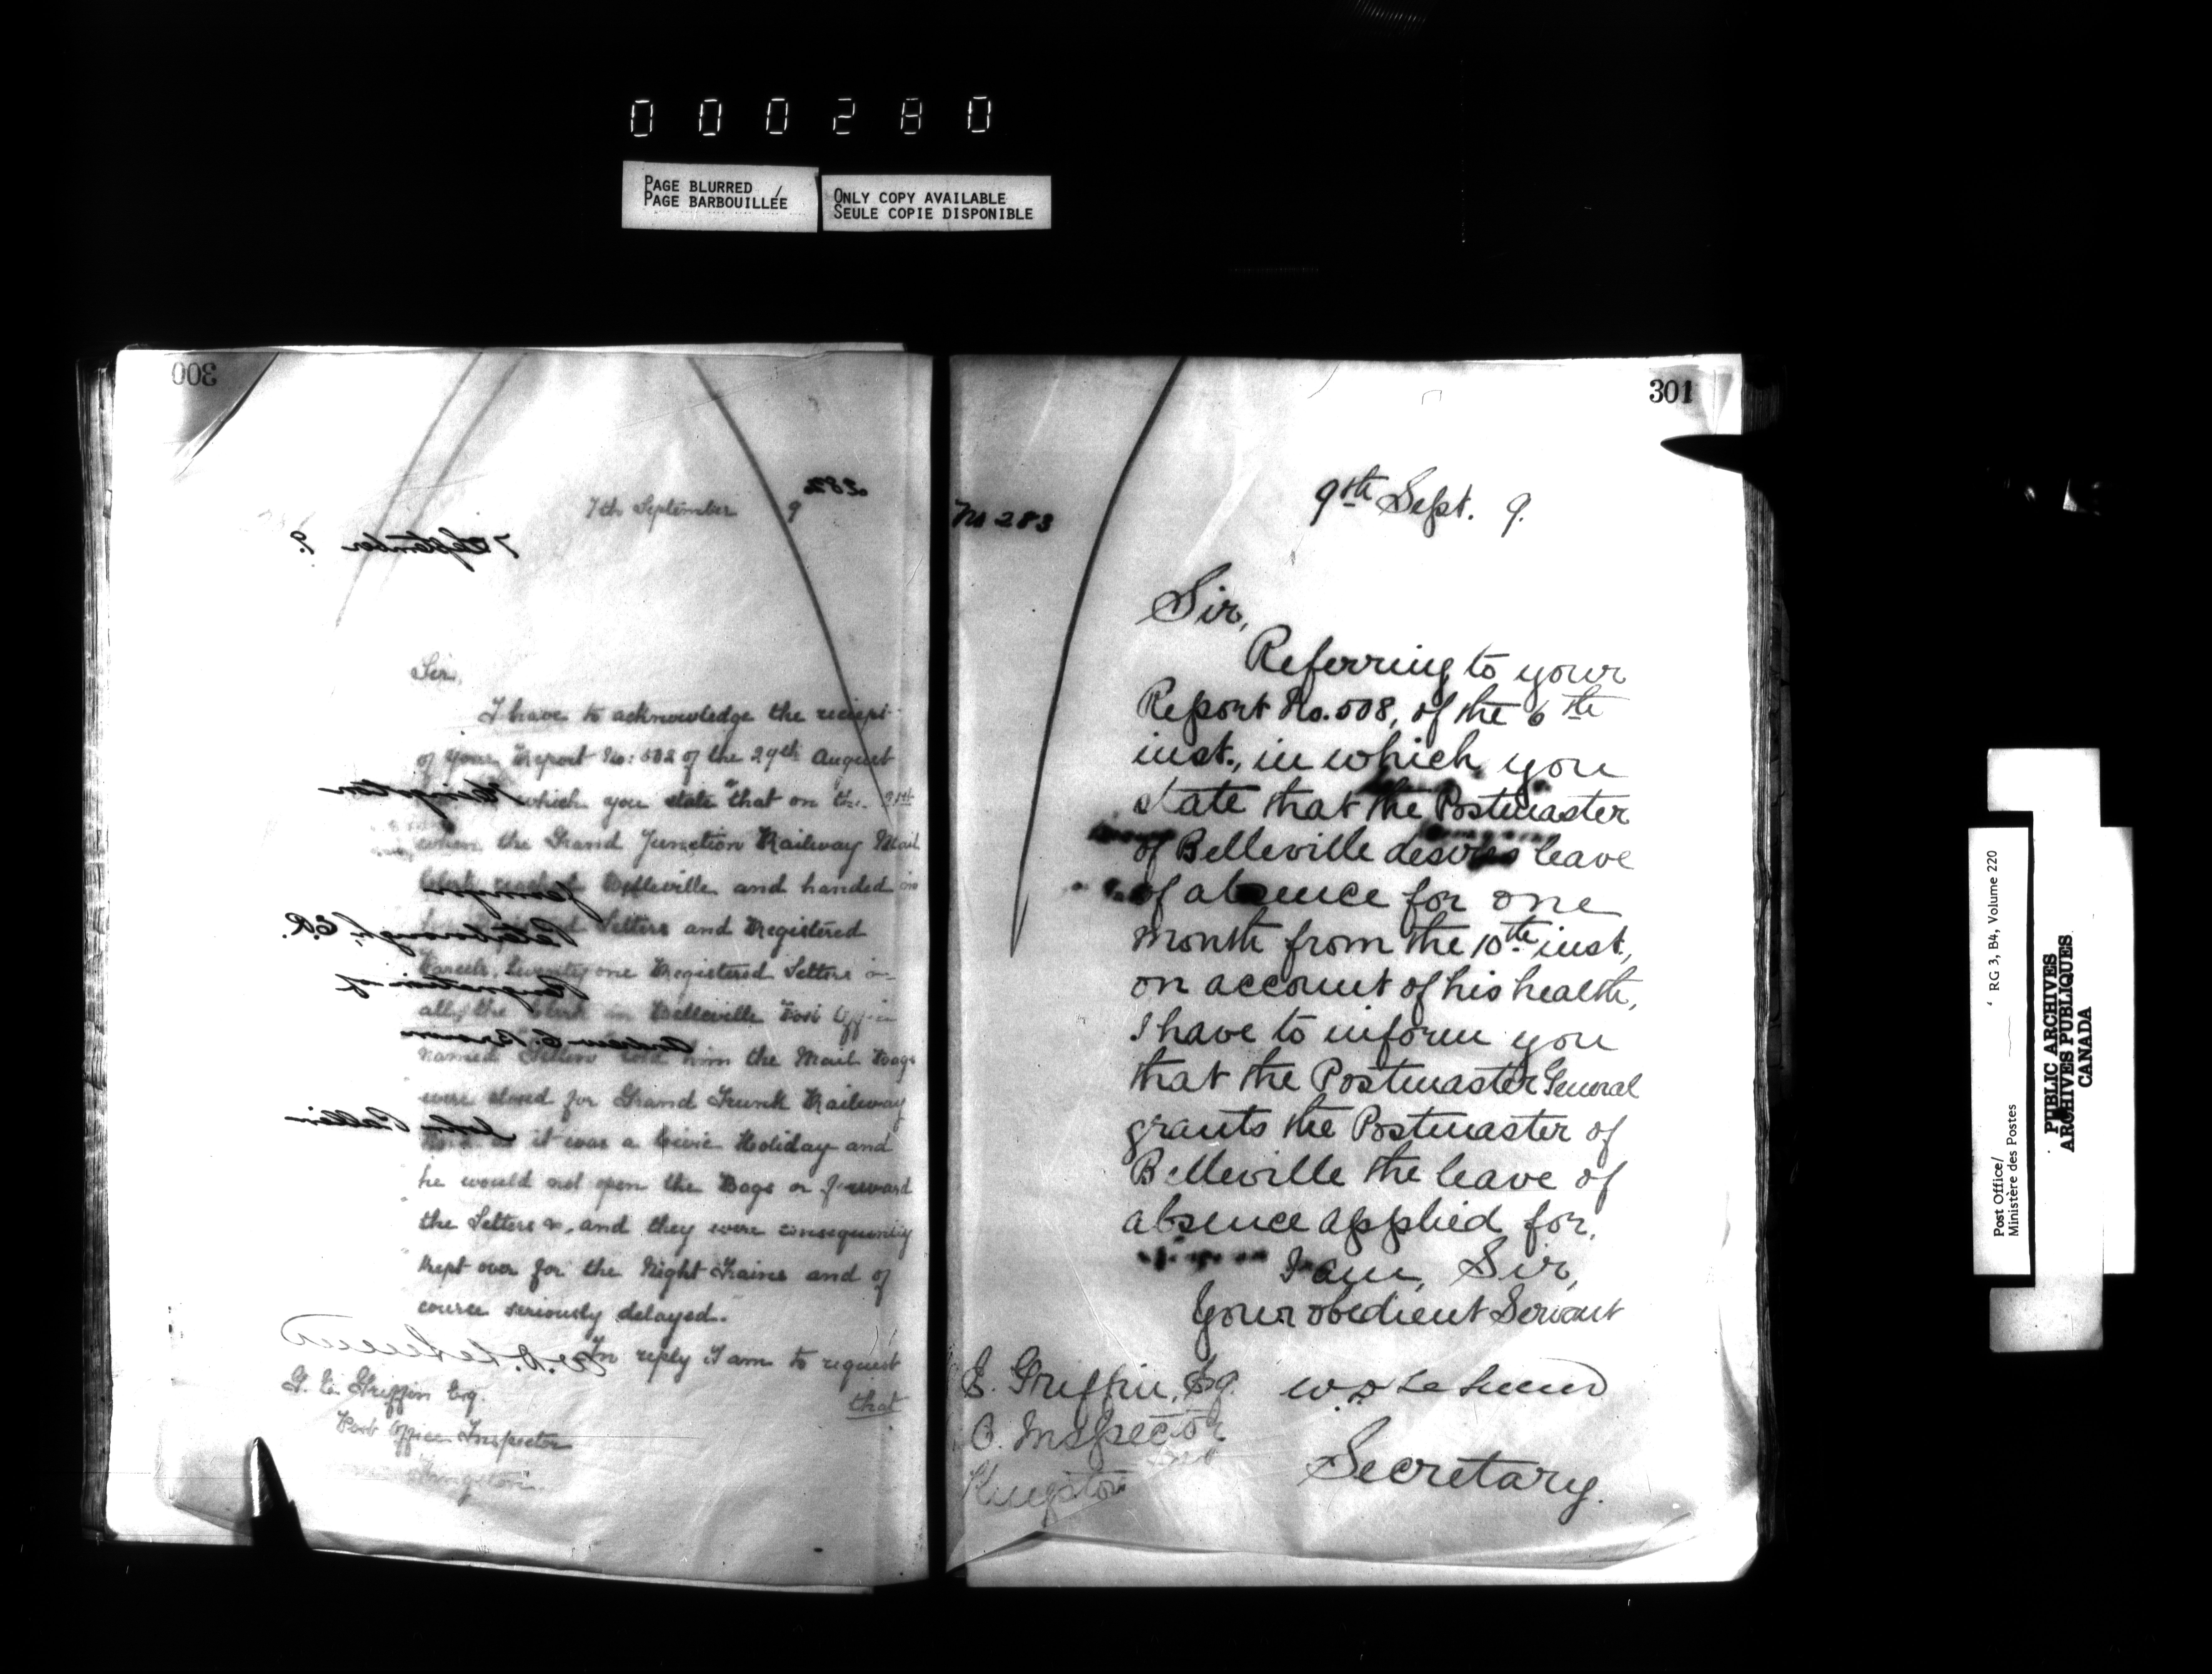 000280
PAGE BLURRED /
PAGE BARBOUILLÉE
ONLY COPY AVAILABLE
SEULE COPIE DISPONIBLE
300
282
7th September 9
7 September 9.
Sir,
I have to acknowledge the receipt
of your Report No: 502 of the 29th August
Kingston
which you state "that on the 21st
when the Grand Junction Railway Mail
Belleville and handed in
Letters and Registered
Peterborough, E.R.
Parcels, twenty one Registered Letters in
Resignation of
all, the Clerk in Belleville Post Office
Andrew C. Brown
named told him the Mail Bags
were closed for Grand Trunk Railway
as it was a Civic Holiday and
he would not open the Bags or forward
the Letters &c, and they were consequently
kept over for the Night Trains and of
course seriously delayed."
In reply I am to request
that
W. D. LeSueur
G. E. Griffin Esq.
Post Office Inspector
Kingston.
301
No 283
9th Sept. 9.
Sir,
Referring to your
Report No. 508, of the 6th
inst., in which you
state that the Postmaster
of Belleville desires leave
of absence for one
month from the 10th inst.,
on account of his health,
I have to inform you
that the Postmaster General
grants the Postmaster of
Belleville the leave of
absence applied for.
I am, Sir,
Your obedient Servant
E. Griffin, Esq.
W. D. LeSueur
O. Inspector
Kingston
Secretary.
Post Office/
Ministère des Postes
RG 3, B4, Volume 220
PUBLIC ARCHIVES
ARCHIVES PUBLIQUES
CANADA